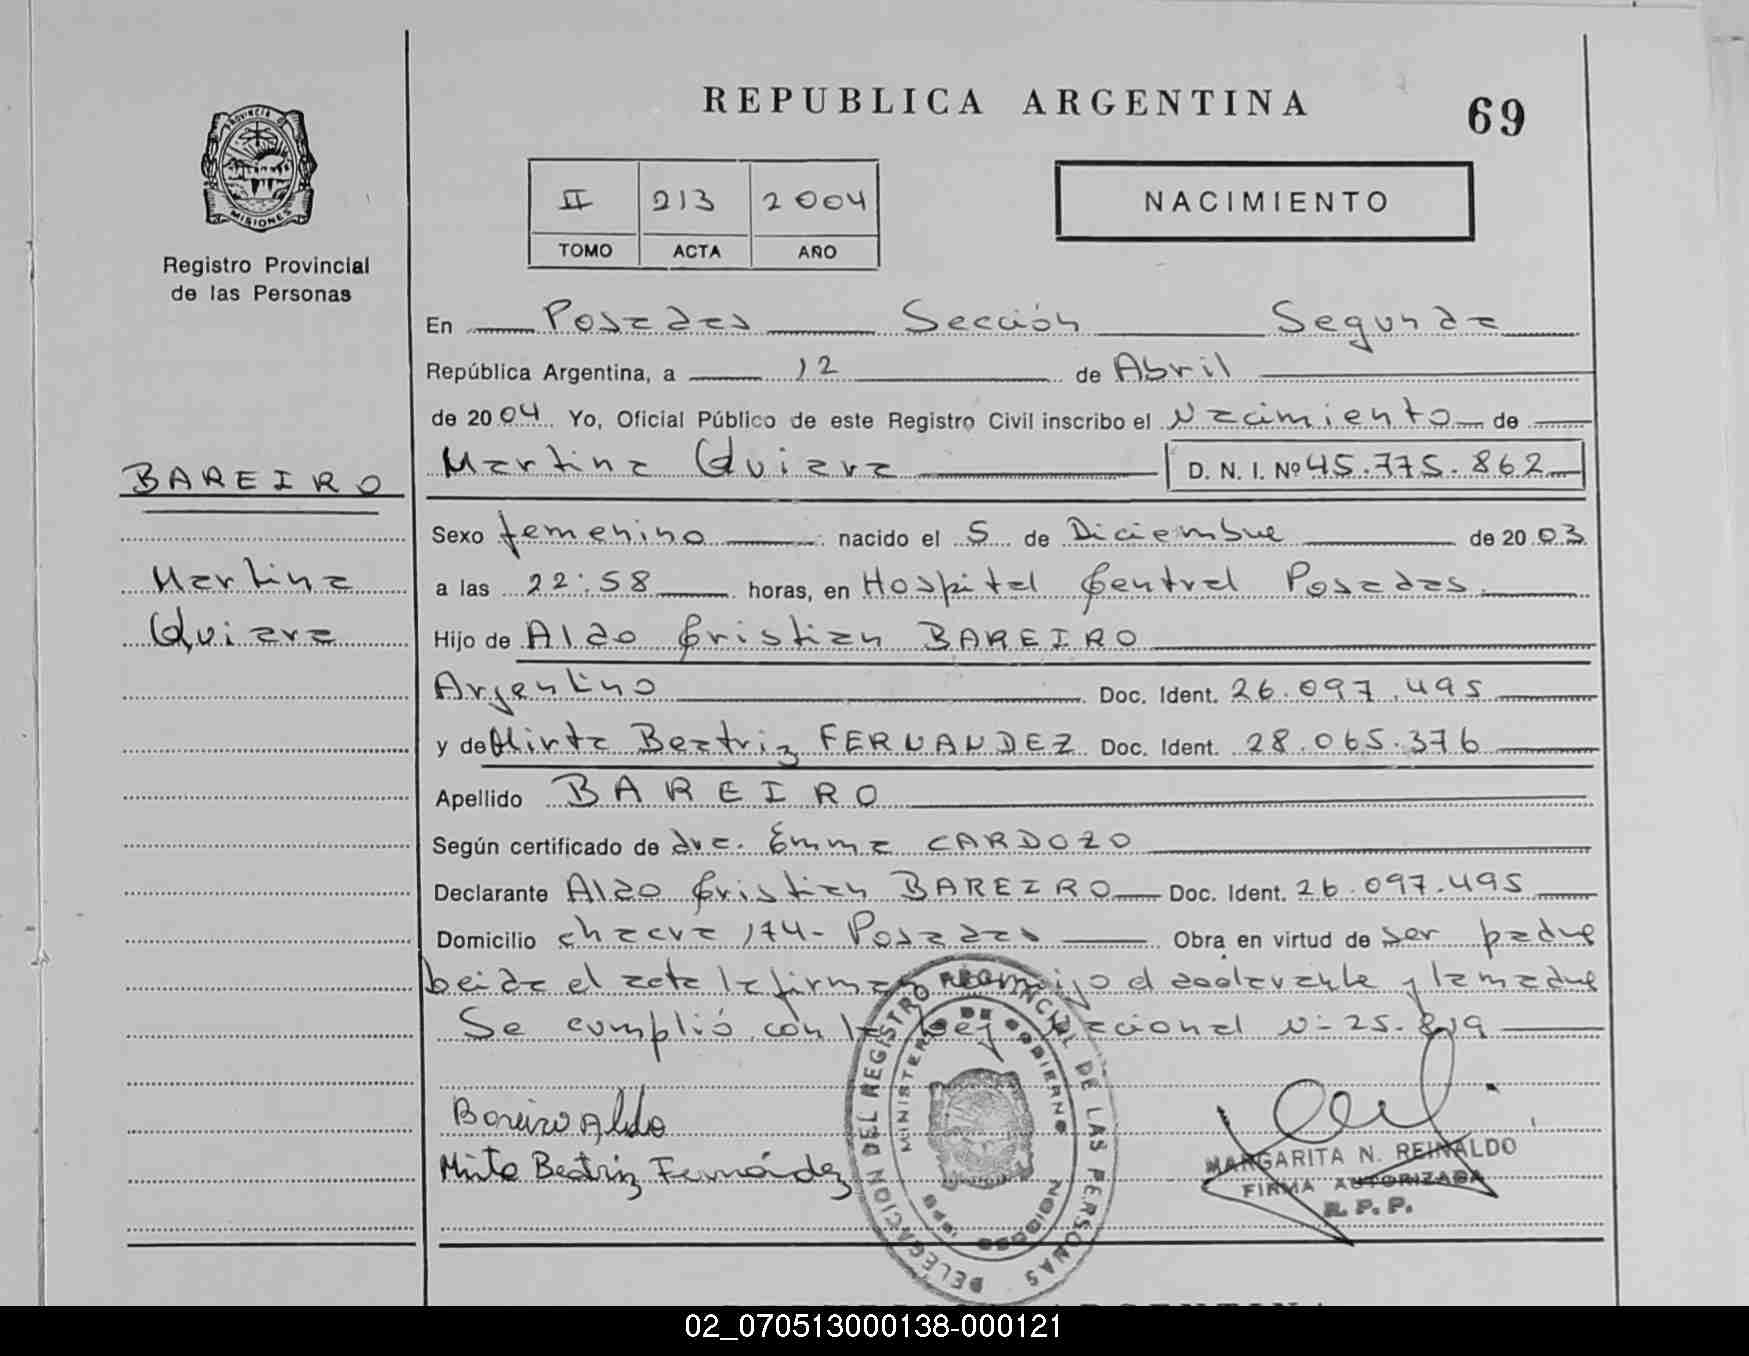 REPUBLICA ARGENTINA
69
PROVINCIA DE
MISIONES
Registro Provincial
de las Personas
II 213 2004
TOMO ACTA AÑO
NACIMIENTO
En Posadas Sección Segunda
República Argentina, a 12 de Abril
de 2004 Yo, Oficial Público de este Registro Civil inscribo el Nacimiento de
Martina Quiara D. N. I. Nº 45.775.862
BAREIRO
Martina
Quiara
Sexo femenino nacido el 5 de Diciembre de 2003
a las 22:58 horas, en Hospital Central Posadas.
Hijo de Aldo Cristian BAREIRO
Argentino Doc. Ident. 26.097.495
y de Mirta Beatriz FERNANDEZ Doc. Ident. 28.065.376
Apellido BAREIRO
Según certificado de dra. Emma CARDOZO
Declarante Aldo Cristian BAREIRO Doc. Ident. 26.097.495
Domicilio chacra 174- Posadas Obra en virtud de ser padre
leida el acta la firma conmigo el declarante y la madre
Se cumplió con la Ley Nacional Nº 25.819
Bareiro Aldo
Mirta Beatriz Fernández
DELEGACION DEL REGISTRO PROVINCIAL DE LAS PERSONAS
MINISTERIO DE GOBIERNO
MARGARITA N. REINALDO
FIRMA AUTORIZADA
R. P. P.
02_070513000138-000121